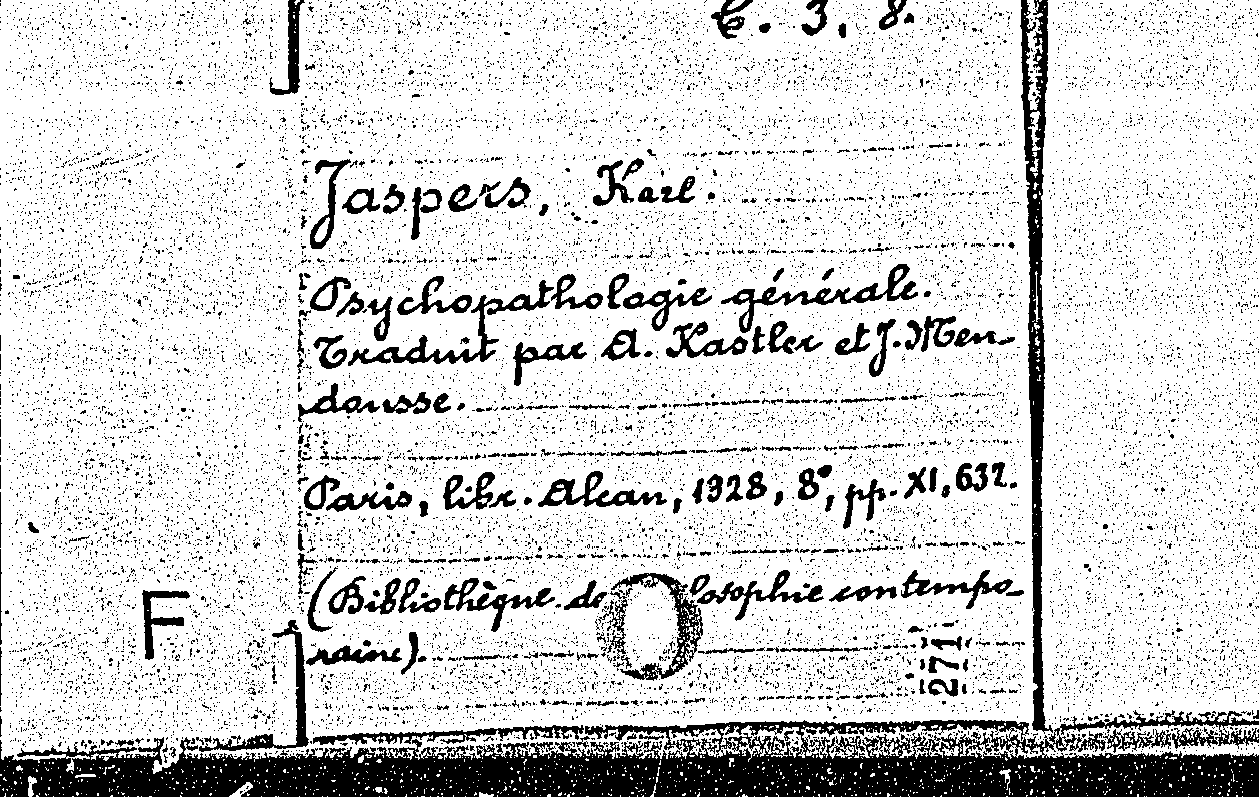 C. 3, 8.
Jaspers, Karl.
Psychopathologie générale.
Traduit par A. Kastler et J. Men-
dousse.
Paris, libr. Alcan, 1928, 8°, pp. XI, 632.
(Bibliothèque de losophie contempo-
raine).
F
271